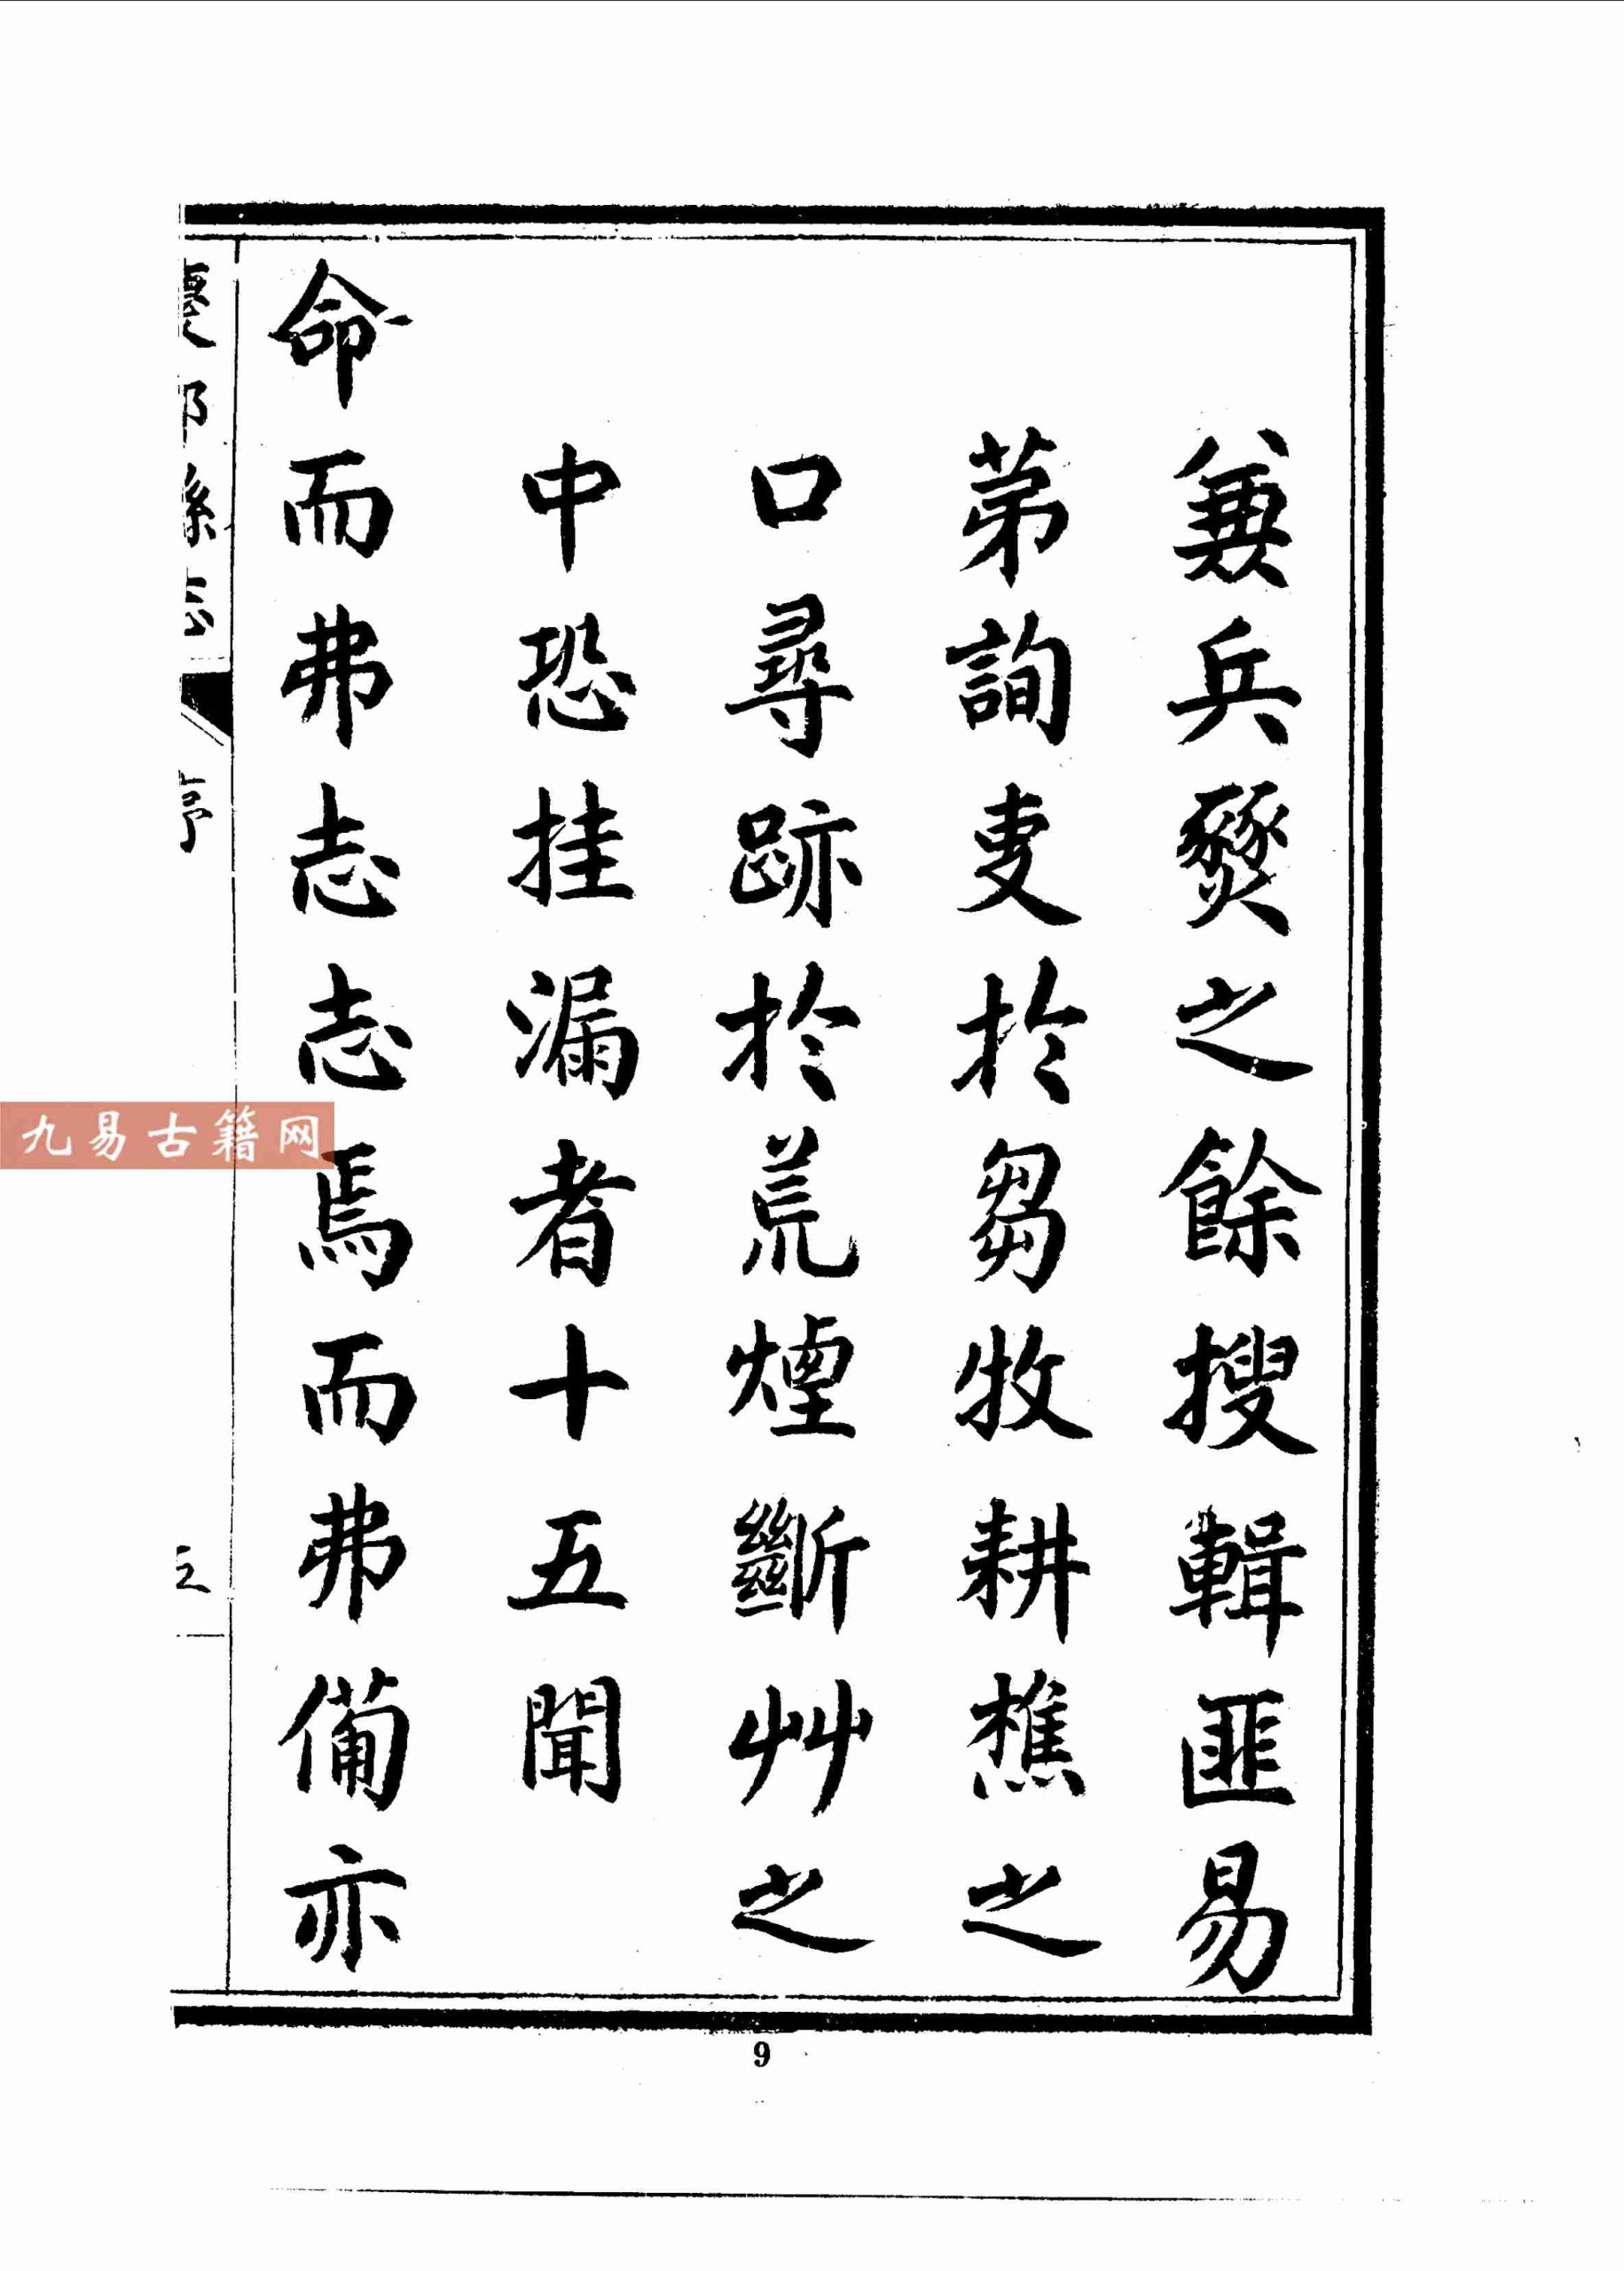 兼兵燹之餘搜輯匪易
苐詢叓於芻牧耕樵之
口尋跡於荒煙斷艸之
中恐挂漏者十五聞
命而弗志志焉而弗備亦
縣志
序
九易古籍网
9